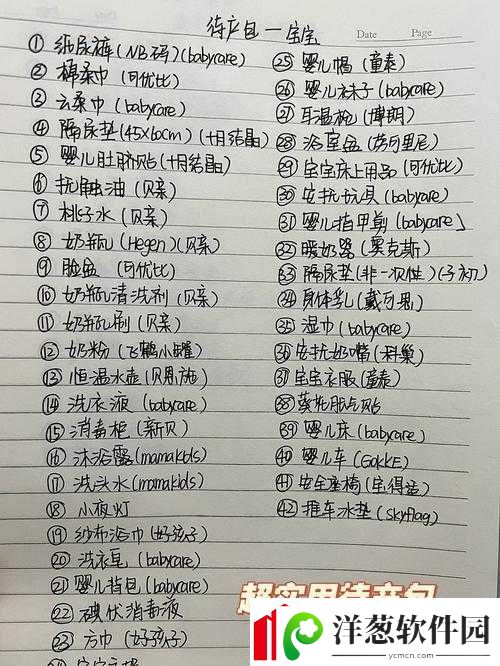 待产包一宝宝
Date
Page
① 纸尿裤(NB码)(babycare)
② 棉柔巾(可优比)
③ 云柔巾(babycare)
④ 隔尿垫(45×60cm)(十月结晶)
⑤ 婴儿肚脐贴(十月结晶)
⑥ 抚触油(贝亲)
⑦ 桃子水(贝亲)
⑧ 奶瓶(Hegen)(贝亲)
⑨ 脸盆(可优比)
⑩ 奶瓶清洗剂(贝亲)
⑪ 奶瓶刷(贝亲)
⑫ 奶粉(飞鹤小罐)
⑬ 恒温水壶(贝恩施)
⑭ 洗衣液(babycare)
⑮ 消毒柜(新贝)
⑯ 沐浴露(mamakids)
⑰ 洗头水(mamakids)
⑱ 小夜灯
⑲ 纱布浴巾(好孩子)
⑳ 洗衣皂(babycare)
㉑ 婴儿背包(babycare)
㉒ 碘伏消毒液
㉓ 方巾(好孩子)
㉕ 婴儿帽(童泰)
㉖ 婴儿袜子(babycare)
㉗ 耳温枪(博朗)
㉘ 浴室盆(劳可里尼)
㉙ 宝宝床上用品(可优比)
㉚ 安抚玩具(babycare)
㉛ 婴儿指甲剪(babycare)
㉜ 暖奶器(奥克斯)
㉝ 隔尿垫(非一次性)(子初)
㉞ 身体乳(戴可思)
㉟ 湿巾(babycare)
㊱ 安抚奶嘴(科巢)
㊲ 宝宝衣服(童泰)
㊴ 婴儿床(babycare)
㊵ 婴儿车
㊶ 安全座椅(宝得适)
㊷ 推车冰垫(skyflag)
超实用待产包
洋葱软件园
ycmcn.com